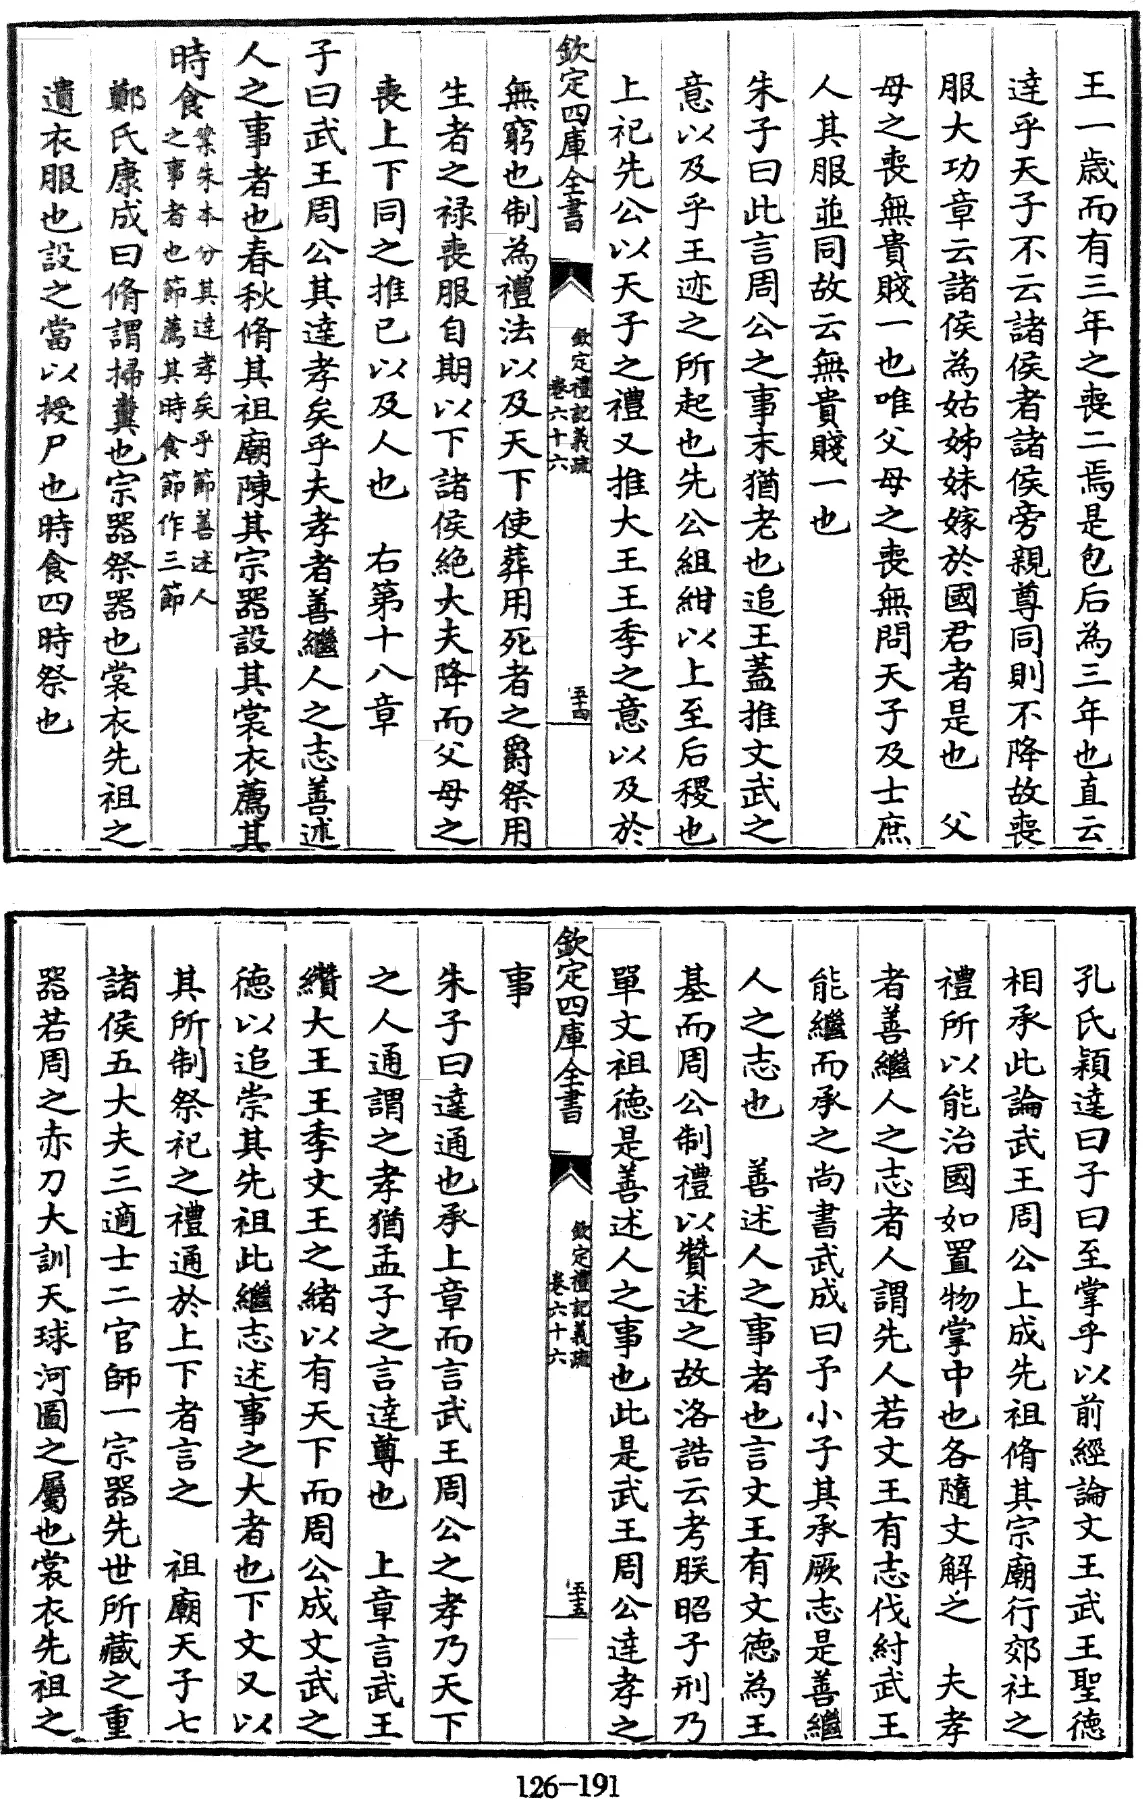 王一歳而有三年之喪二焉是包后為三年也直云
達乎天子不云諸侯者諸侯旁親尊同則不降故喪
服大功章云諸侯為姑姊妹嫁於國君者是也　父
母之喪無貴賤一也唯父母之喪無問天子及士庶
人其服並同故云無貴賤一也
朱子曰此言周公之事末猶老也追王蓋推文武之
意以及乎王迹之所起也先公組紺以上至后稷也
上祀先公以天子之禮又推大王王季之意以及於
欽定四庫全書
欽定禮記義疏
卷六十六
五十四
無窮也制為禮法以及天下使葬用死者之爵祭用
生者之禄喪服自期以下諸侯絶大夫降而父母之
喪上下同之推已以及人也　右第十八章
子曰武王周公其達孝矣乎夫孝者善繼人之志善述
人之事者也春秋脩其祖廟陳其宗器設其裳衣薦其
時食
案朱本分其達孝矣乎節善述人
之事者也節薦其時食節作三節
鄭氏康成曰脩謂掃糞也宗器祭器也裳衣先祖之
遺衣服也設之當以授尸也時食四時祭也
孔氏穎達曰子曰至掌乎以前經論文王武王聖德
相承此論武王周公上成先祖脩其宗廟行郊社之
禮所以能治國如置物掌中也各隨文解之　夫孝
者善繼人之志者人謂先人若文王有志伐紂武王
能繼而承之尚書武成曰予小子其承厥志是善繼
人之志也　善述人之事者也言文王有文德為王
基而周公制禮以贊述之故洛誥云考朕昭子刑乃
單文祖德是善述人之事也此是武王周公達孝之
欽定四庫全書
欽定禮記義疏
卷六十六
五十五
事
朱子曰達通也承上章而言武王周公之孝乃天下
之人通謂之孝猶孟子之言達尊也　上章言武王
纘大王王季文王之緒以有天下而周公成文武之
德以追崇其先祖此繼志述事之大者也下文又以
其所制祭祀之禮通於上下者言之　祖廟天子七
諸侯五大夫三適士二官師一宗器先世所藏之重
器若周之赤刀大訓天球河圖之屬也裳衣先祖之
126-191